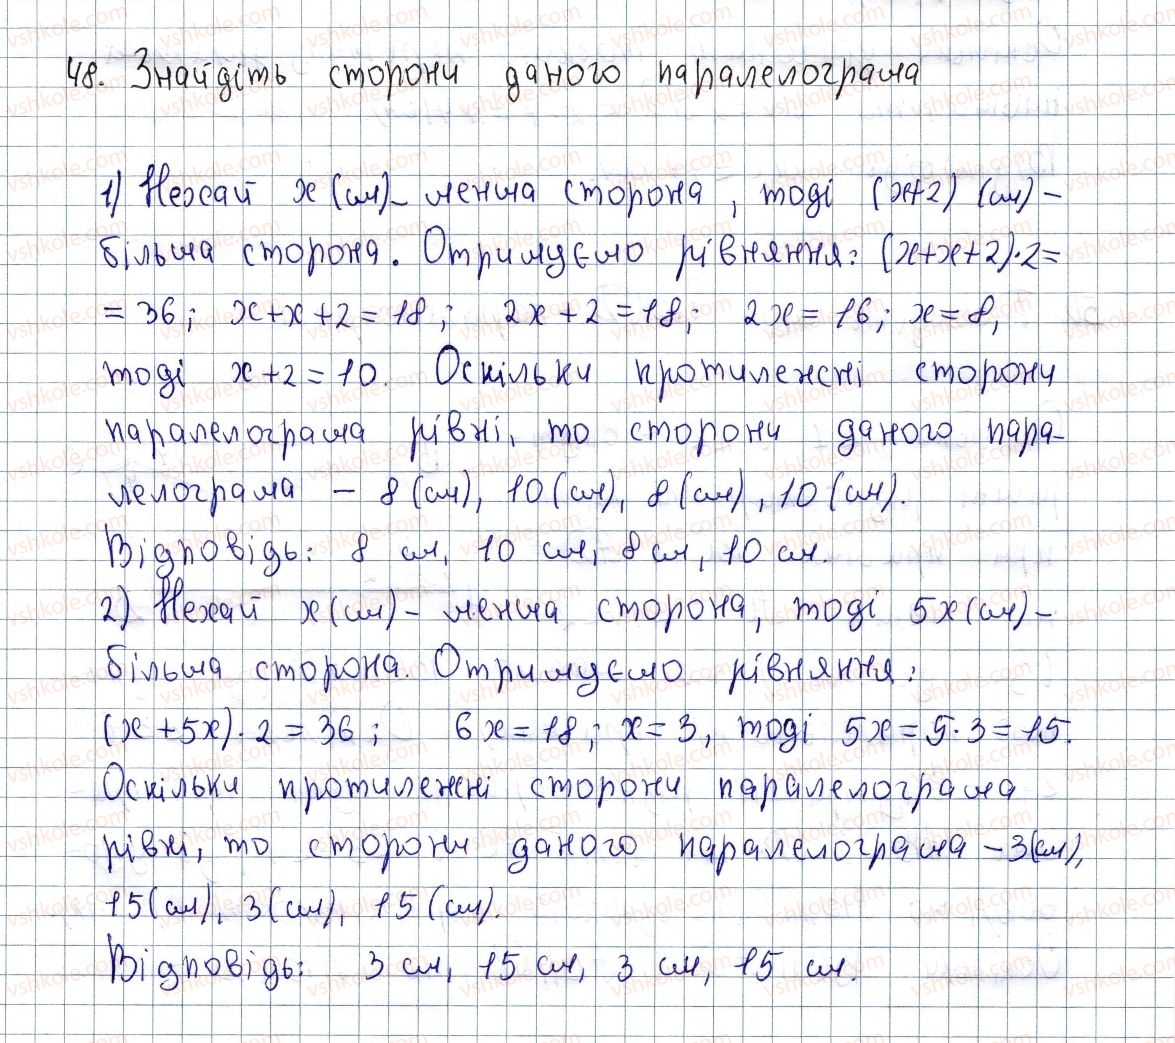 48. Знайдіть сторони даного паралелограма
1) Нехай x (см) – менша сторона, тоді (x+2) (см) –
більша сторона. Отримуємо рівняння: (x+x+2)·2=
= 36; x+x+2=18; 2x+2=18; 2x=16; x=8,
тоді x+2=10. Оскільки протилежні сторони
паралелограма рівні, то сторони даного пара-
лелограма – 8 (см), 10 (см), 8 (см), 10 (см).
Відповідь: 8 см, 10 см, 8 см, 10 см.
2) Нехай x (см) – менша сторона, тоді 5x (см) –
більша сторона. Отримуємо рівняння:
(x+5x)·2=36; 6x=18; x=3, тоді 5x=5·3=15.
Оскільки протилежні сторони паралелограма
рівні, то сторони даного паралелограма – 3 (см),
15 (см), 3 (см), 15 (см).
Відповідь: 3 см, 15 см, 3 см, 15 см.